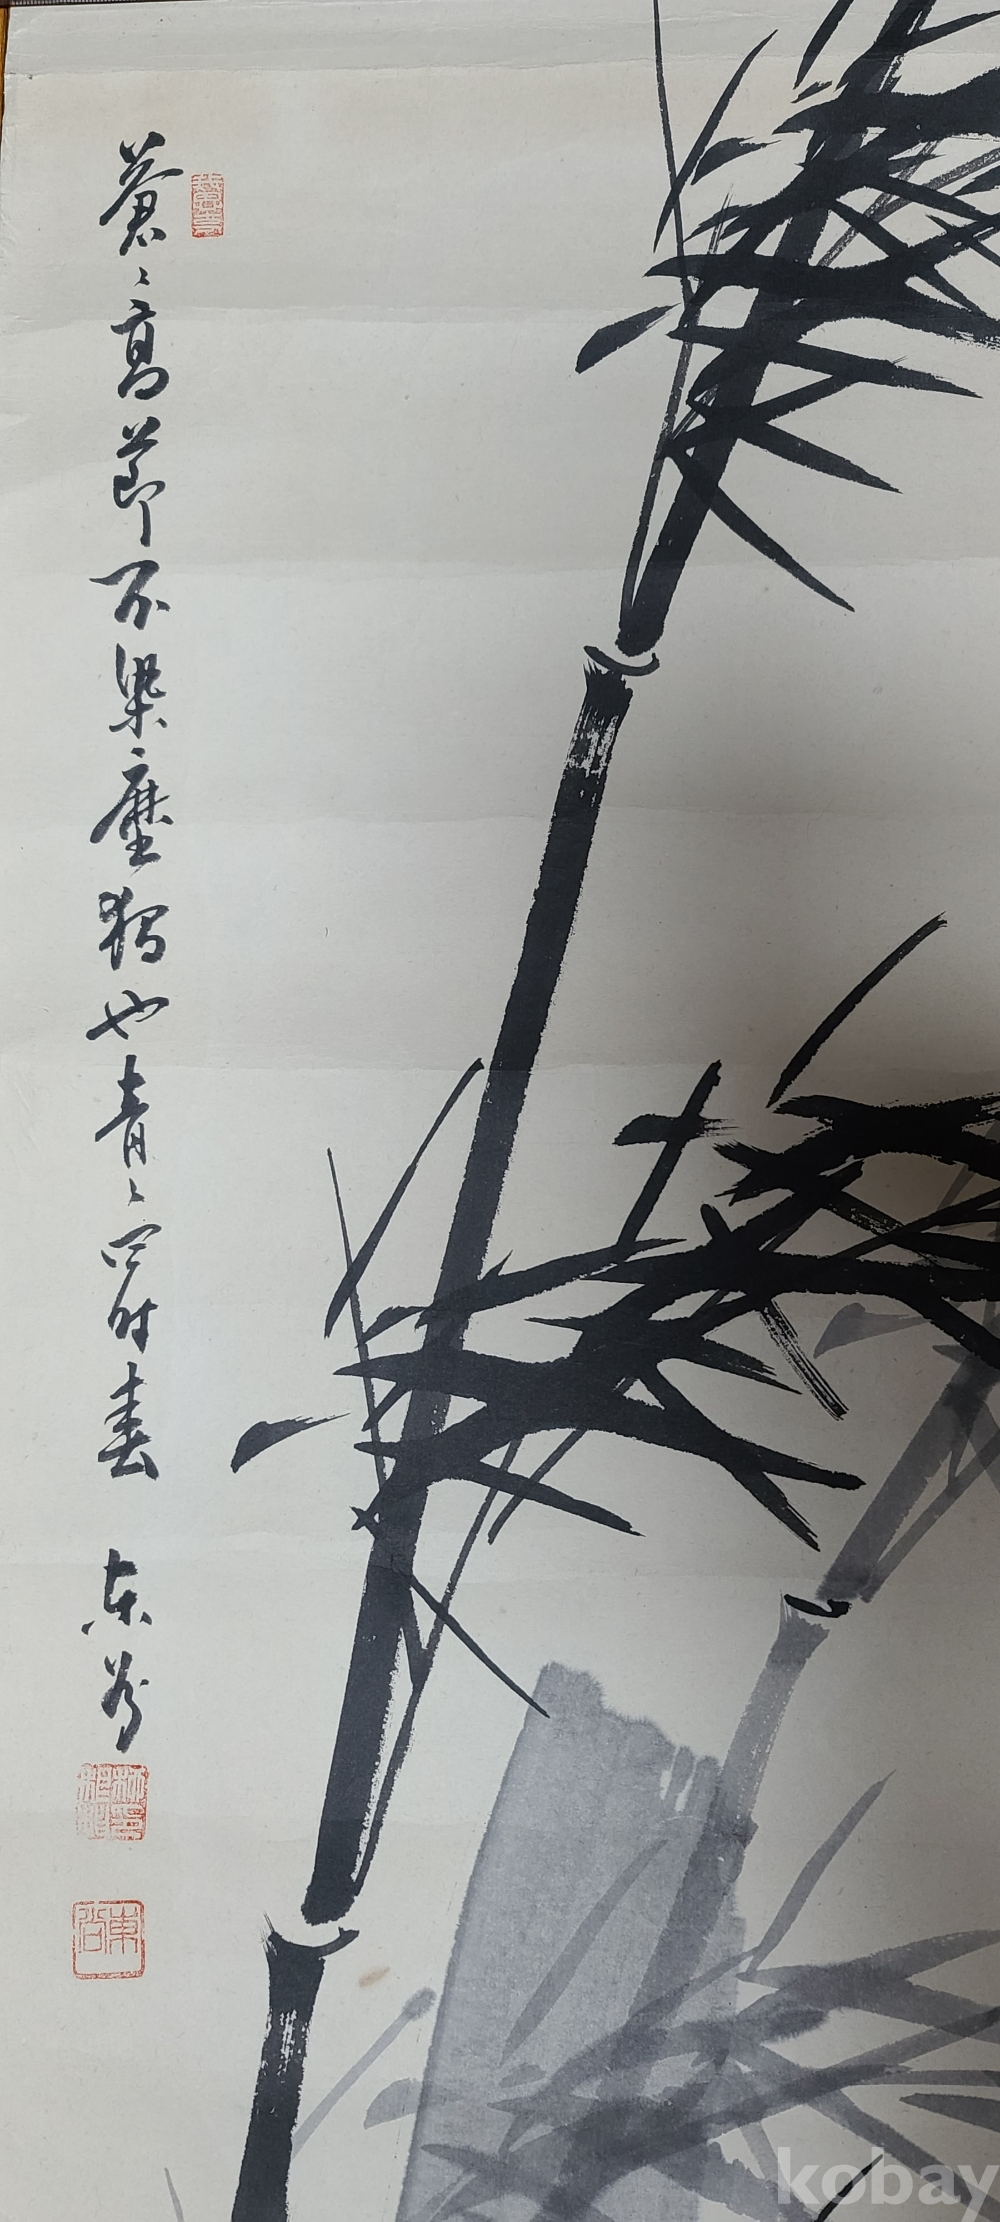 蒼〻高節不染塵獨也青〻四時春
東
kobay